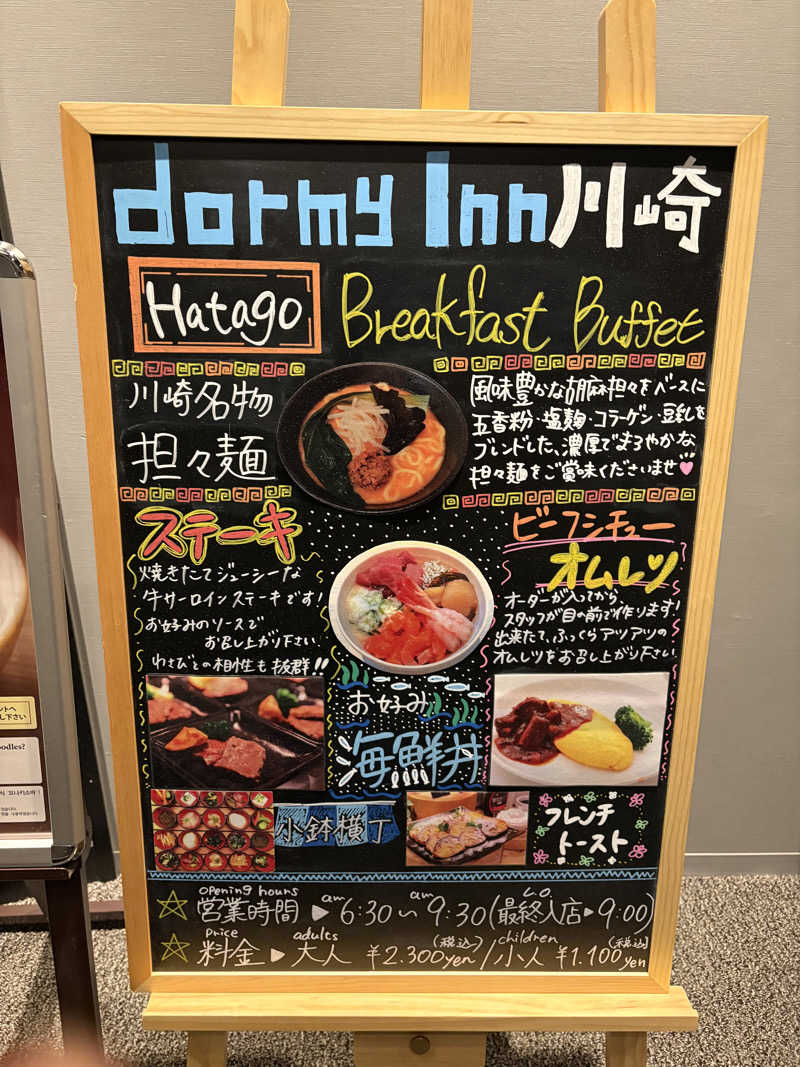 dormy Inn川崎
Hatago
Breakfast Buffet
川崎名物
担々麺
風味豊かな胡麻担々をベースに
五香粉・塩麹・コラーゲン・豆乳を
ブレンドした、濃厚でまろやかな
担々麺をご賞味くださいませ♥
ステーキ
焼きたてジューシーな
牛サーロインステーキです!
お好みのソースで
お召し上がり下さい
わさびとの相性も抜群!!
ビーフシチュー
オムレツ
オーダーが入ってから、
スタッフが目の前で作ります!
出来たて、ふっくらアツアツの
オムレツをお召し上がり下さい
お好み
海鮮丼
小鉢横丁
フレンチ
トースト
opening hours
☆営業時間▶am6:30〜am9:30(L.O最終入店▶9:00)
Price adults children
☆料金▶大人 ¥2.300yen(税込)/小人 ¥1.100yen(税込)
し下さい
oodles?